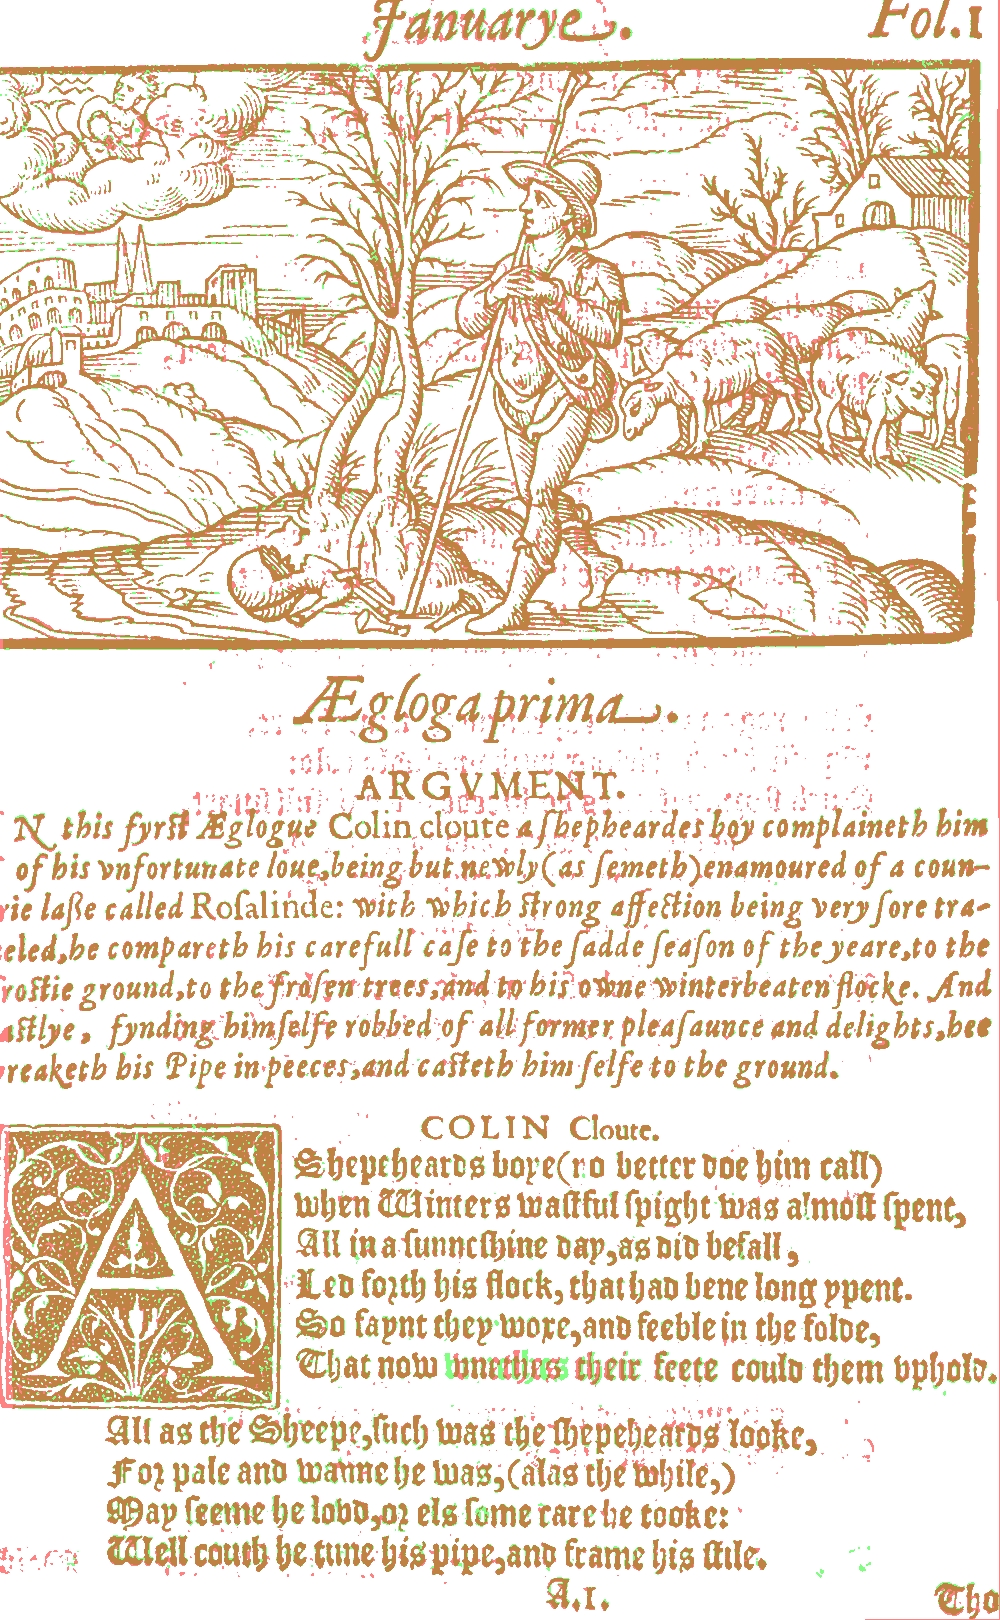 Januarye. Fol.1
Ægloga prima.
ARGVMENT.
N this fyrſt Æglogue Colin cloute a ſhepheardes boy complaineth him
of his vnfortunate loue, being but newly (as ſemeth) enamoured of a coun-
rie laſſe called Roſalinde: with which ſtrong affection being very ſore tra-
eled, he compareth his carefull caſe to the ſadde ſeaſon of the yeare, to the
roſtie ground, to the froſen trees, and to his owne winterbeaten flocke. And
aſtlye, fynding himſelfe robbed of all former pleaſaunce and delights, hee
reaketh his Pipe in peeces, and caſteth him ſelfe to the ground.
COLIN Cloute.
A Shepeheards boye (no better doe him call)
when Winters waſtful ſpight was almoſt ſpent,
All in a ſunneſhine day, as did befall,
Led forth his flock, that had bene long ypent.
So faynt they woxe, and feeble in the folde,
That now vnnethes their feete could them vphold.
All as the Sheepe, ſuch was the ſhepeheards looke,
For pale and wanne he was, (alas the while,)
May ſeeme he lovd, or els ſome care he tooke:
Well couth he tune his pipe, and frame his ſtile.
A.1. Tho